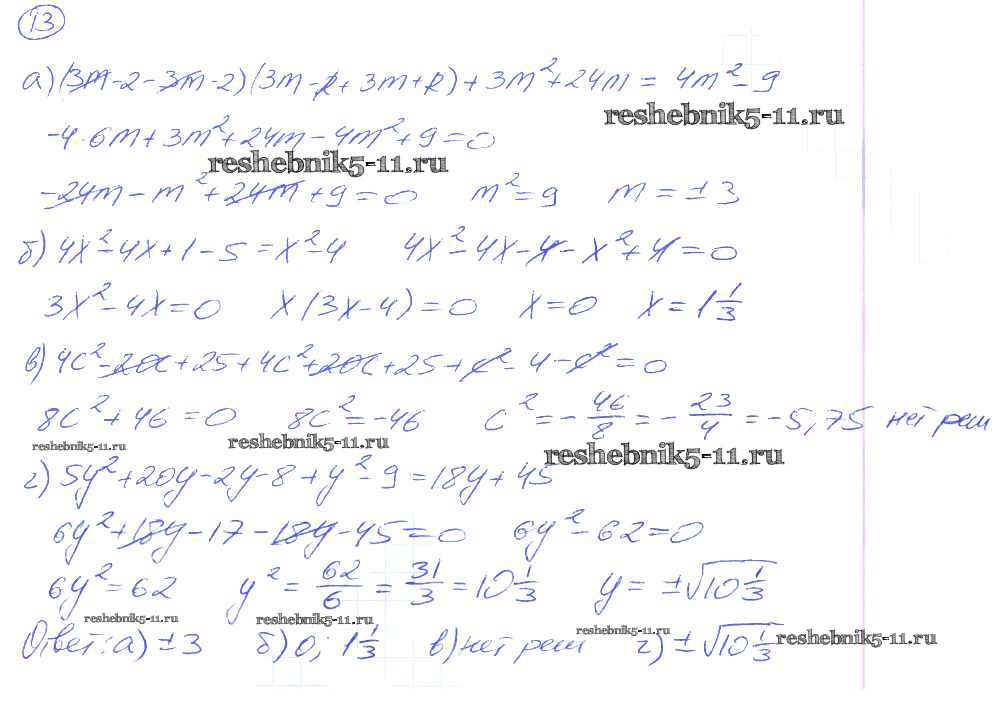 13
а) (3m-2-3m-2)(3m-2+3m+2)+3m²+24m=4m²-9
reshebnik5-11.ru
-4·6m+3m²+24m-4m²+9=0
reshebnik5-11.ru
-24m-m²+24m+9=0 m²=9 m=±3
б) 4x²-4x+1-5=x²-4 4x²-4x-4-x²+4=0
3x²-4x=0 x(3x-4)=0 x=0 x=1 1/3
в) 4c²-20c+25+4c²+20c+25+c²-4-c²=0
8c²+46=0 8c²=-46 c²=-46/8=-23/4=-5,75 нет реш
reshebnik5-11.ru reshebnik5-11.ru reshebnik5-11.ru
г) 5y²+20y-2y-8+y²-9=18y+45
6y²+18y-17-18y-45=0 6y²-62=0
6y²=62 y²=62/6=31/3=10 1/3 y=±√10 1/3
reshebnik5-11.ru reshebnik5-11.ru reshebnik5-11.ru reshebnik5-11.ru
Ответ: а) ±3 б) 0; 1 1/3 в) нет реш г) ±√10 1/3